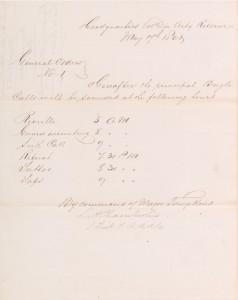 Headquarters Arty Reserve
May 19th 1863
General Orders
No 1
Hereafter the principal Bugle
Calls will be sounded at the following hours
Reveille 5 A.M
Guard mounting 8 " "
Sick Call 9 " "
Retreat 7.30 P.M
Tattoo 8.30 " "
Taps 9 " "
By command of Major